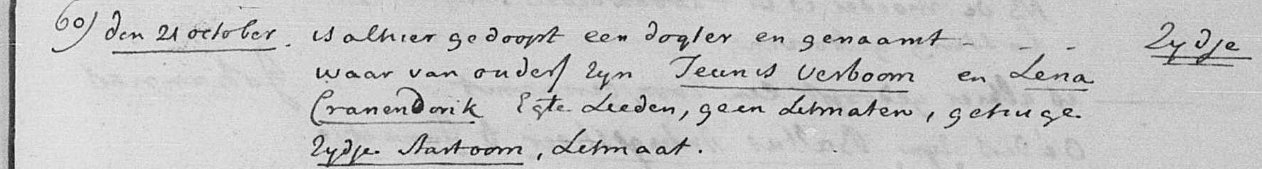 60) den 21 october is alhier gedoopt een dogter en genaamt - - - Zydje
waar van ouders zyn Teunis Verboom en Lena
Cranendonk Egte Lieden, geen Letmaten, getuige
Zydje Aartoom, Letmaat.